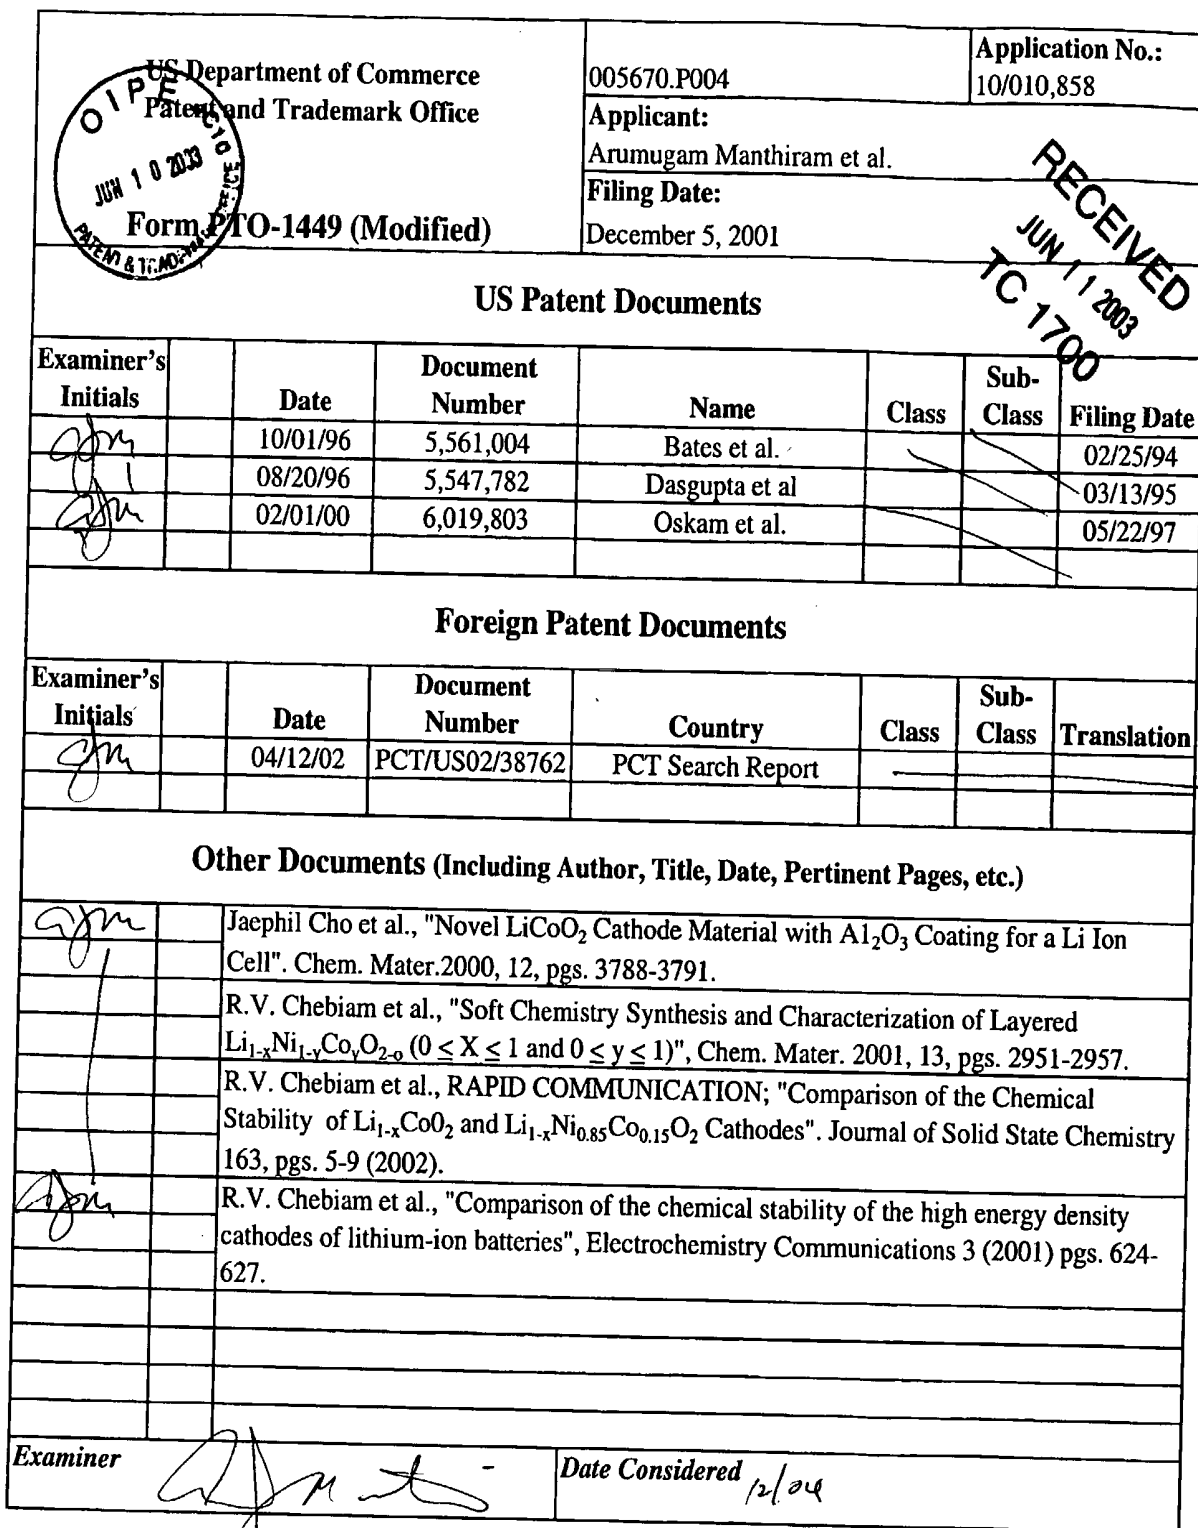 US Department of Commerce
Patent and Trademark Office
Form PTO-1449 (Modified)
005670.P004
Application No.:
10/010,858
Applicant:
Arumugam Manthiram et al.
Filing Date:
December 5, 2001
OIPE
JUN 10 2003
PATENT & TRADEMARK OFFICE
RECEIVED
JUN 11 2003
TC 1700
US Patent Documents
Examiner's Initials Date Document Number Name Class Sub-Class Filing Date
10/01/96 5,561,004 Bates et al. 02/25/94
08/20/96 5,547,782 Dasgupta et al 03/13/95
02/01/00 6,019,803 Oskam et al. 05/22/97
Foreign Patent Documents
Examiner's Initials Date Document Number Country Class Sub-Class Translation
04/12/02 PCT/US02/38762 PCT Search Report
Other Documents (Including Author, Title, Date, Pertinent Pages, etc.)
Jaephil Cho et al., "Novel LiCoO₂ Cathode Material with A1₂O₃ Coating for a Li Ion
Cell". Chem. Mater.2000, 12, pgs. 3788-3791.
R.V. Chebiam et al., "Soft Chemistry Synthesis and Characterization of Layered
Li₁₋ₓNi₁₋ᵧCoᵧO₂₋ₒ (0 ≤ X ≤ 1 and 0 ≤ y ≤ 1)", Chem. Mater. 2001, 13, pgs. 2951-2957.
R.V. Chebiam et al., RAPID COMMUNICATION; "Comparison of the Chemical
Stability of Li₁₋ₓCo0₂ and Li₁₋ₓNi₀.₈₅Co₀.₁₅O₂ Cathodes". Journal of Solid State Chemistry
163, pgs. 5-9 (2002).
R.V. Chebiam et al., "Comparison of the chemical stability of the high energy density
cathodes of lithium-ion batteries", Electrochemistry Communications 3 (2001) pgs. 624-
627.
Examiner
Date Considered 12/04